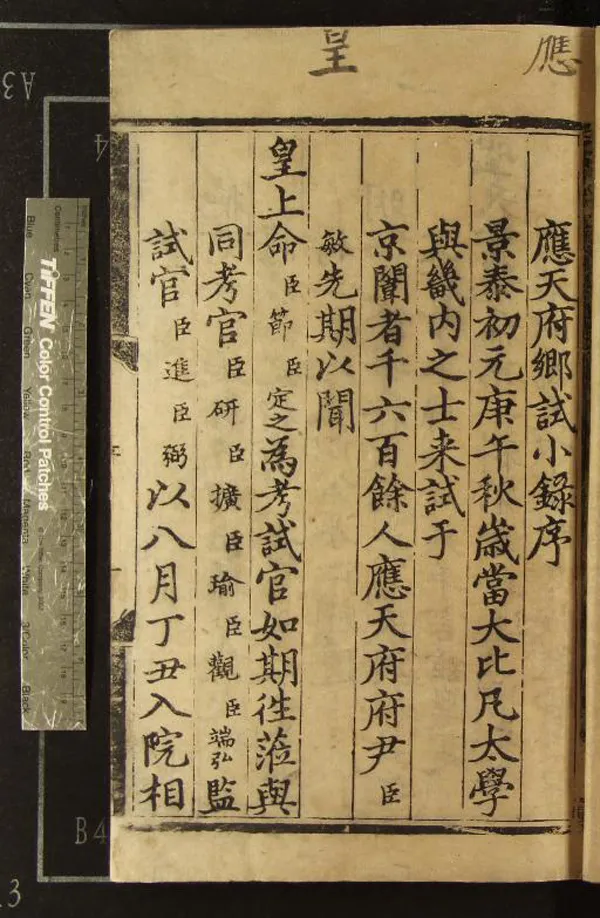 應
皇
應天府鄉試小錄序
景泰初元庚午秋歲當大比凡太學
與畿內之士来試于
京闈者千六百餘人應天府府尹臣
敏先期以聞
皇上命臣節臣定之為考試官如期徃蒞與
同考官臣研臣擴臣瑜臣觀臣端弘監
試官臣進臣弼以八月丁丑入院相
A3
4
B4
.3
TIFFEN Color Control Patches
Blue
Cyan
Green
Yellow
Red
Magenta
White
3/Color
Black